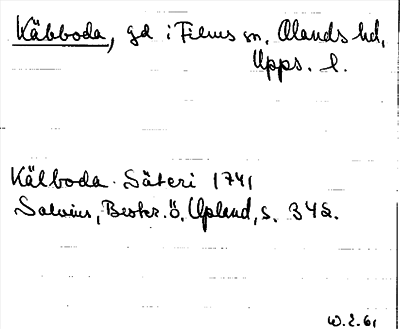 Käbboda, gd i Films sn, Olands hd,
Upps. l.
Kälboda. Säteri 1741
Salvius, Beskr. ö. Upland, s. 342.
W.E. 61